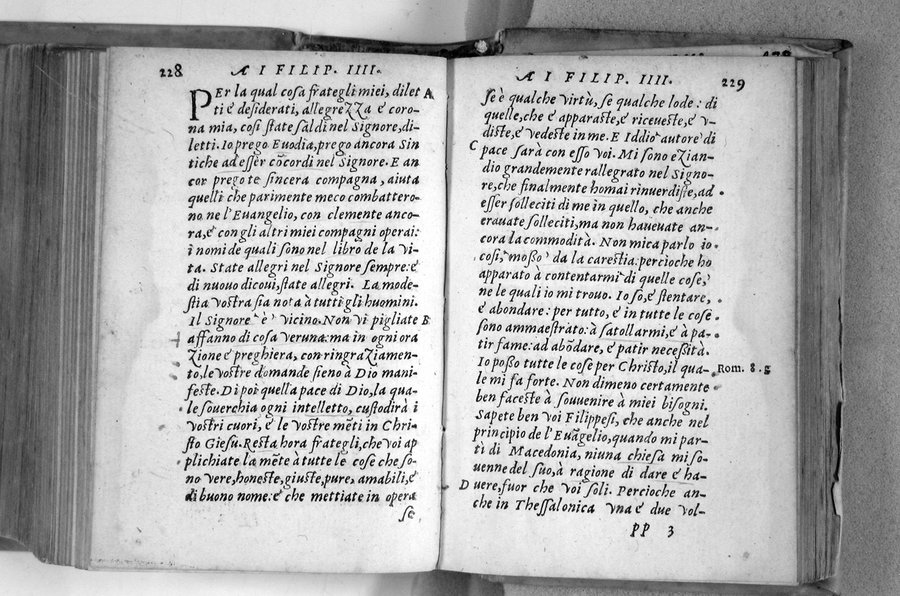 228 A I FILIP. IIII.
PEr la qual cosa frategli miei, dilet A
ti è desiderati, allegreZZa è coro-
na mia, cosi state saldi nel Signore, di-
letti. Io prego Euodia, prego ancora Sin
tiche ad esser cõcordi nel Signore. E an
cor prego te sincera compagna, aiuta
quelli che parimente meco combattero-
no ne l'Euangelio, con clemente anco-
ra, è con gli altri miei compagni operai:
i nomi de quali sono nel libro de la vi-
ta. State allegri nel Signore sempre: è
di nuouo dicoui, state allegri. La mode-
stia vostra sia nota à tutti gli huomini.
Il Signore è vicino. Non vi pigliate B
affanno di cosa veruna: ma in ogni ora
Zione è preghiera, con ringraZiamen-
to, le vostre domande sieno à Dio mani-
feste. Di poi quella pace di Dio, la qua-
le souerchia ogni intelletto, custodirà i
vostri cuori, è le vostre mẽti in Chri-
sto Giesu. Resta hora frategli, che voi ap
plichiate la mẽte à tutte le cose che so-
no vere, honeste, giuste, pure, amabili, è
di buono nome: è che mettiate in opera
se
A I FILIP. IIII. 229
se è qualche virtù, se qualche lode: di
quelle, che è apparaste, è riceueste, è v-
diste, è vedeste in me. E Iddio autore di
C pace sarà con esso voi. Mi sono eZian-
dio grandemente rallegrato nel Signo-
re, che finalmente homai rinuerdisse, ad
esser solleciti di me in quello, che anche
erauate solleciti, ma non haueuate an-
cora la commodità. Non mica parlo io
cosi, mosso da la carestia: percioche ho
apparato à contentarmi di quelle cose,
ne le quali io mi trouo. Io so, è stentare,
è abondare: per tutto, è in tutte le cose
sono ammaestrato: à satollarmi, è à pa-
tir fame: ad abõdare, è patir necessità.
Io posso tutte le cose per Christo, il qua- Rom. 8. g
le mi fa forte. Non dimeno certamente
ben faceste à souuenire à miei bisogni.
Sapete ben voi Filippesi, che anche nel
principio de l'Euãgelio, quando mi par-
tì di Macedonia, niuna chiesa mi so-
uenne del suo, à ragione di dare è ha-
D uere, fuor che voi soli. Percioche an-
che in Thessalonica vna è due vol-
PP 3